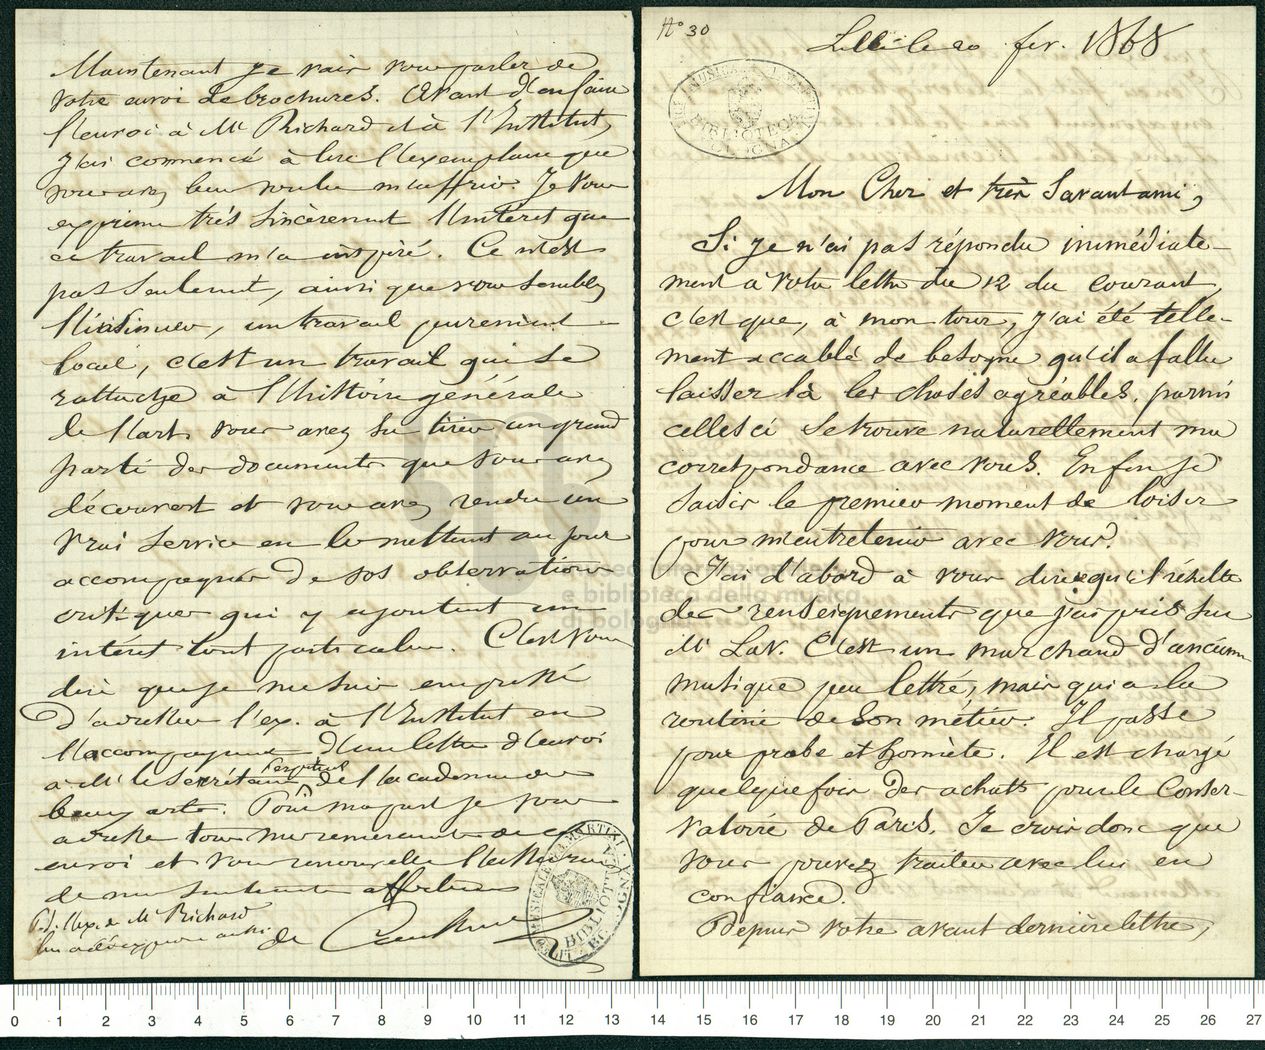 N° 30
Lille le 20 fev. 1868
Mon Cher et très Savant ami,
Si je n'ai pas répondu immédiate-
ment à votre lettre du 12 du courant,
c'est que, à mon tour, j'ai été telle-
ment accablé de besogne qu'il a fallu
laisser là les choses agréables, parmi
celles ci se trouve naturellement ma
correspondance avec vous. Enfin je
saisis le premier moment de loisir
pour m'entretenir avec vous.
J'ai d'abord à vous dire qu'il résulte
des renseignements que j'ai pris sur
Mr Lav. C'est un marchand d'ancienne
musique peu lettré, mais qui a la
routine de son métier. Il passe
pour probe et honnête. Il est chargé
quelquefois des achats pour le Conser-
vatoire de Paris. Je crois donc que
vous pouvez traiter avec lui en
confiance.
Depuis votre avant dernière lettre,
Maintenant je vais vous parler de
votre envoi de brochures. Avant d'en faire
l'envoi à Mr Richard et à l'Institut,
j'ai commencé à lire l'exemplaire que
vous avez bien voulu m'offrir. Je vous
exprime très sincèrement l'intérêt que
ce travail m'a inspiré. Ce n'est
pas seulement, ainsi que vous semblez
l'insinuer, un travail purement
local, c'est un travail qui se
rattache à l'histoire générale
de l'art. vous avez su tirer un grand
parti des documents que vous avez
découvert et vous avez rendu un
vrai service en les mettant au jour
accompagnés de vos observations
critiques qui y ajoutent un
intérêt tout particulier. C'est vous
dire que je me suis empressé
d'adresser l'ex. à l'Institut en
l'accompagnant d'une lettre d'envoi
à Mr le Secrétaire perpétuel de l'academie des
beaux arts. Pour ma part je vous
adresse tous mes remerciments de cet
envoi et vous renouvelle l'assurance
de mes sentiments affectueux
de Coussemaker
P.S. l'ex. de Mr Richard
lui a été
museo internazionale
e biblioteca della musica
di bologna
0 1 2 3 4 5 6 7 8 9 10 11 12 13 14 15 16 17 18 19 20 21 22 23 24 25 26 27